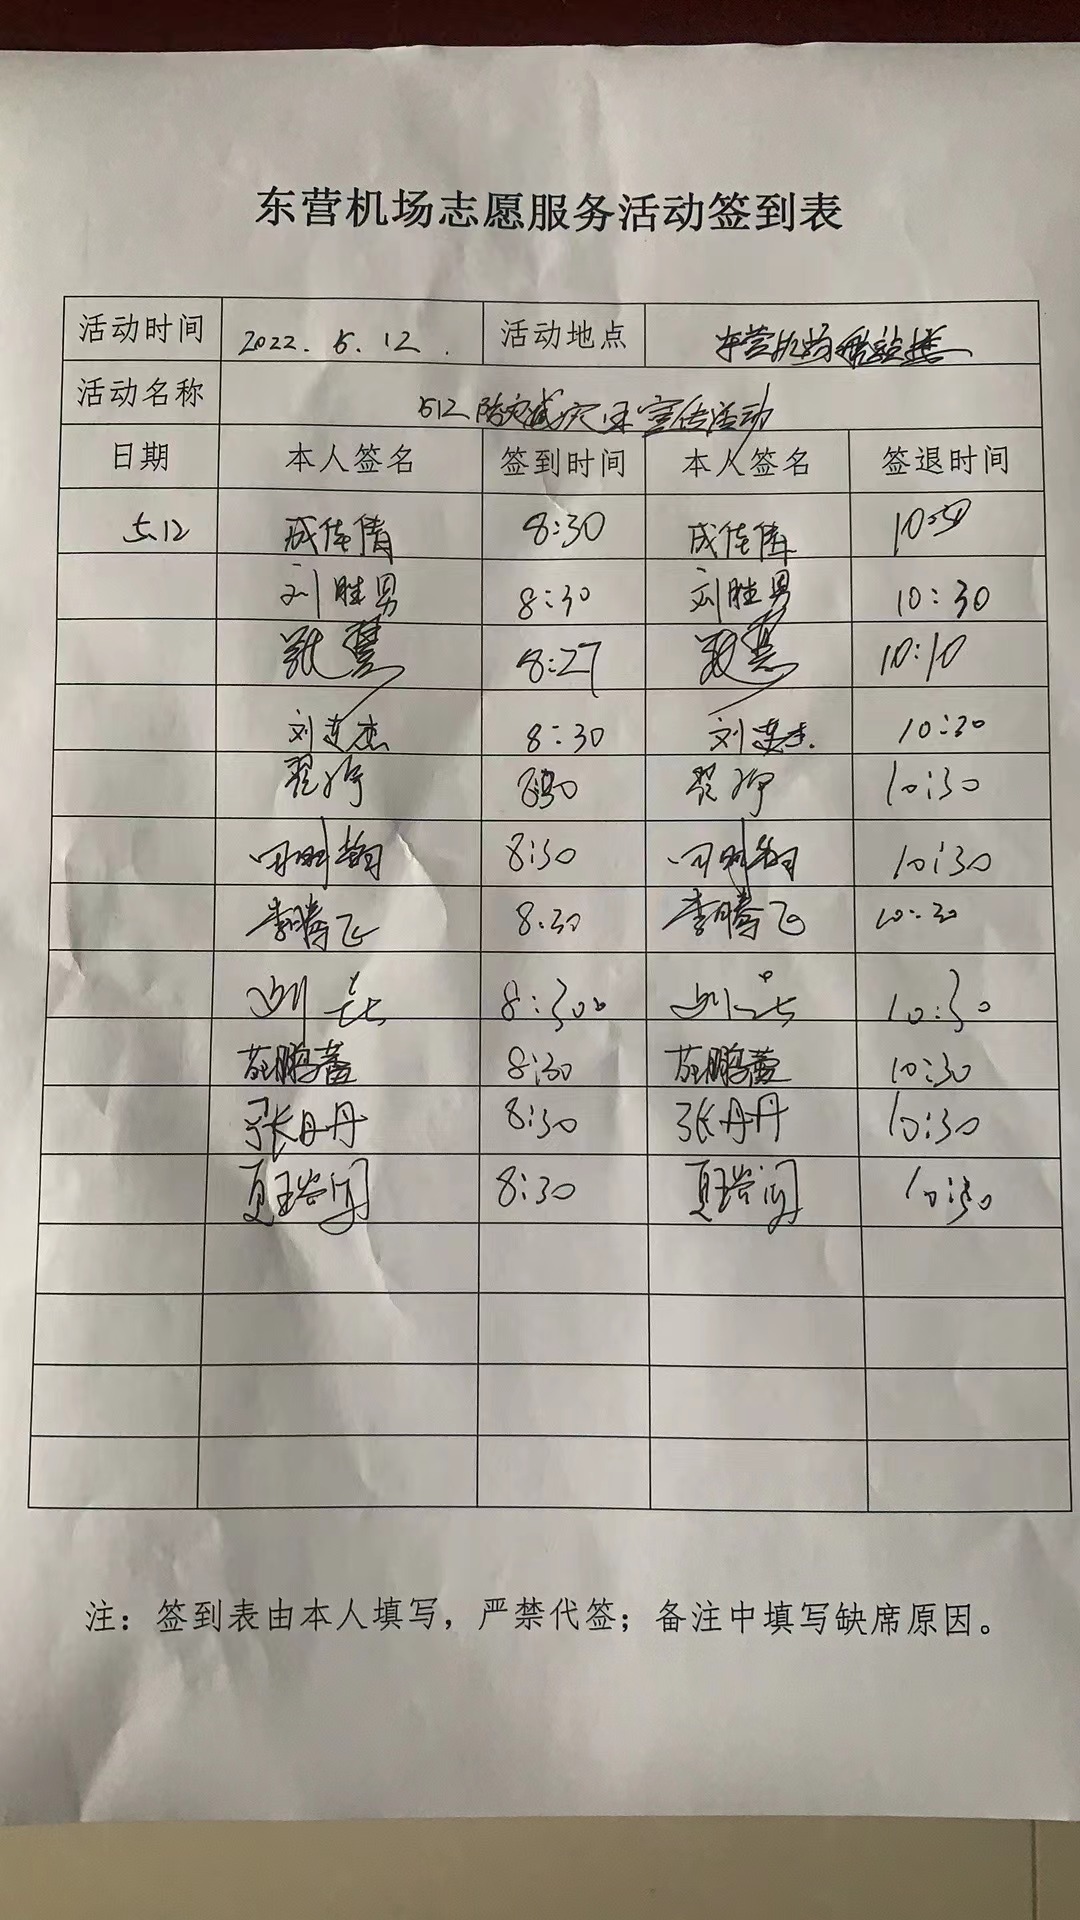 东营机场志愿服务活动签到表
活动时间 2022.5.12. 活动地点 东营机场航站楼
活动名称 512防灾减灾日宣传活动
日期 本人签名 签到时间 本人签名 签退时间
5.12 成佳倩 8:30 成佳倩
刘胜男 8:30 刘胜男 10:30
8:27 10:10
刘连杰 8:30 刘连杰 10:30
翟婷 翟婷 10:30
8:30 10:30
李腾飞 8:30 李腾飞 10:30
8:30 10:30
鹏 8:30 鹏 10:30
张丹丹 8:30 张丹丹 10:30
夏瑢闻 8:30 夏瑢闻 10:30
注：签到表由本人填写，严禁代签；备注中填写缺席原因。